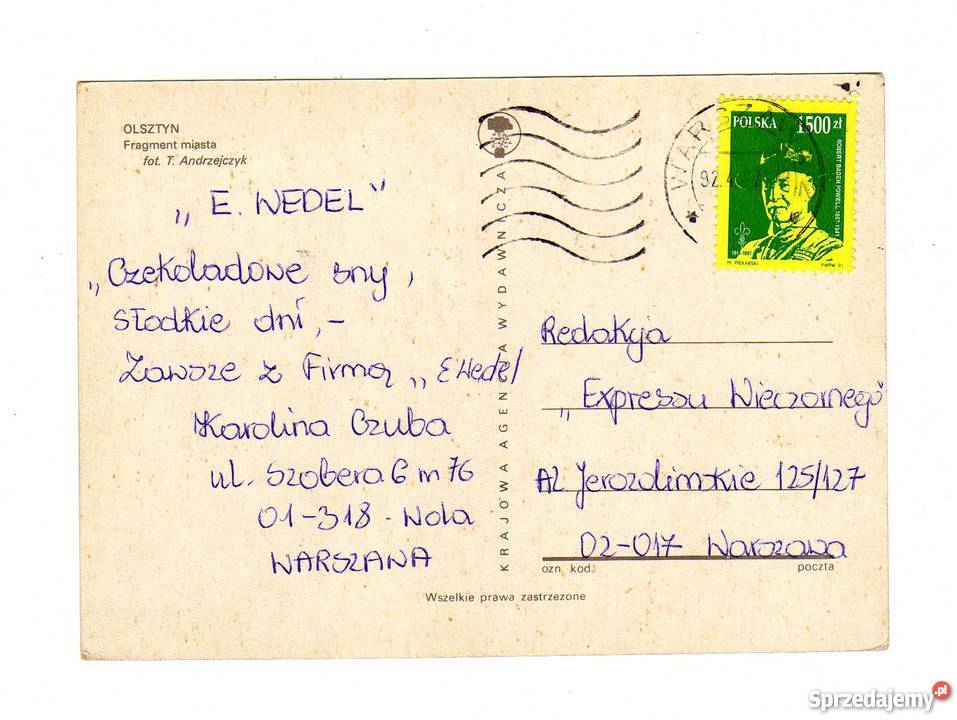 OLSZTYN
Fragment miasta
fot. T. Andrzejczyk
„E. WEDEL"
„Czekoladowe sny,
słodkie dni,-
Zawsze z Firmą „E Wedel
Karolina Czuba
ul. Szobera 6 m 76
01-318 - Wola
WARSZAWA
KRAJOWA AGENCJA WYDAWNICZA
POLSKA 1500 zł
ROBERT BADEN POWELL 1857-1941
1911-1991
M. PIEKARSKI PWPW 91
Redakcja
„Expressu Wieczornego"
Al. Jerozolimskie 125/127
02-017 Warszawa
ozn. kod. poczta
Wszelkie prawa zastrzeżone
Sprzedajemy.pl